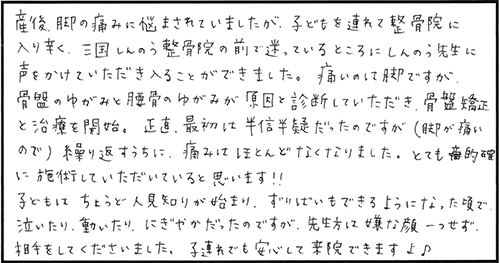 産後、脚の痛みに悩まされていましたが、子どもを連れて整骨院に
入り辛く、三国しんのう整骨院の前で迷っているところにしんのう先生に
声をかけていただき入ることができました。痛いのは脚ですが、
骨盤のゆがみと腰骨のゆがみが原因と診断していただき、骨盤矯正
と治療を開始。正直、最初は半信半疑だったのですが（脚が痛い
ので）繰り返すうちに、痛みはほとんどなくなりました。とても的確
に施術していただいていると思います!!
子どもはちょうど人見知りが始まり、ずりばいもできるようになった頃で、
泣いたり、動いたり、にぎやかだったのですが、先生方は嫌な顔一つせず、
相手をしてくださいました。子連れでも安心して来院できますよ♪